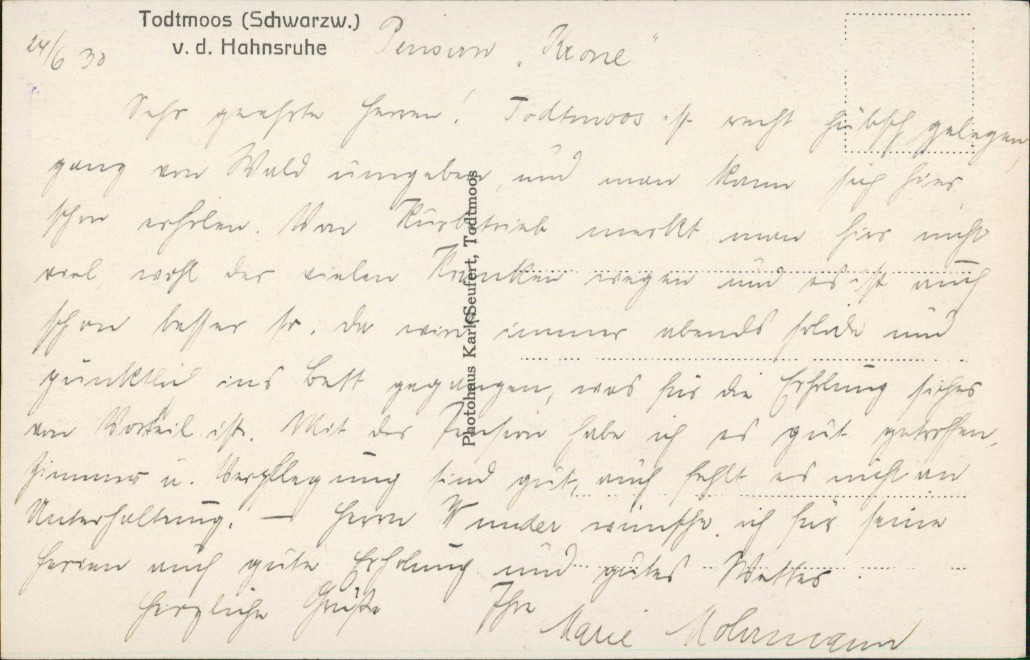 Todtmoos (Schwarzw.)
v. d. Hahnsruhe
24/6 30 Pension „Krone"
Sehr geehrte Herren! Todtmoos ist recht hübsch gelegen,
ganz von Wald umgeben, und man kann sich hier
schon erholen. Von Kurbetrieb merkt man hier nicht
viel, wohl der vielen Kranken wegen und es ist auch
schon besser so. da wird immer abends solide und
pünktlich ins Bett gegangen, was für die Erholung sicher
von Vorteil ist. Mit der Pension habe ich es gut getroffen,
Zimmer u. Verpflegung sind gut, auch fehlt es nicht an
Unterhaltung. — Herrn Wunder wünsche ich für seine
Ferien auch gute Erholung und gutes Wetter.
Herzliche Grüße Ihre Marie Mohrmann
Photohaus Karl Seufert, Todtmoos